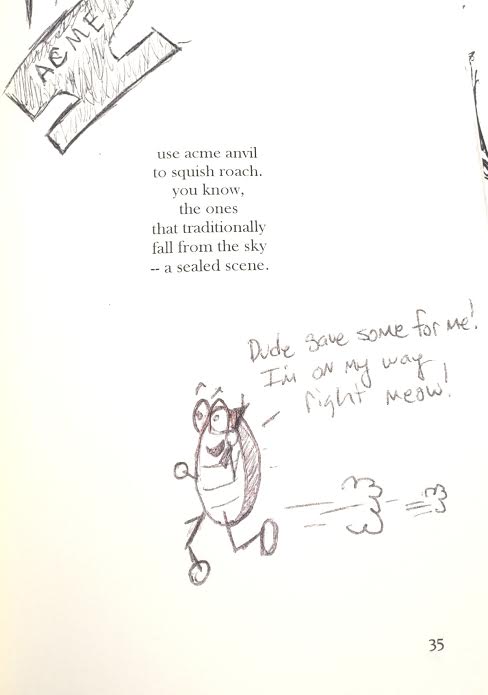 ACME
use acme anvil
to squish roach.
you know,
the ones
that traditionally
fall from the sky
-- a sealed scene.
Dude save some for me!
I'm on my way
right meow!
35